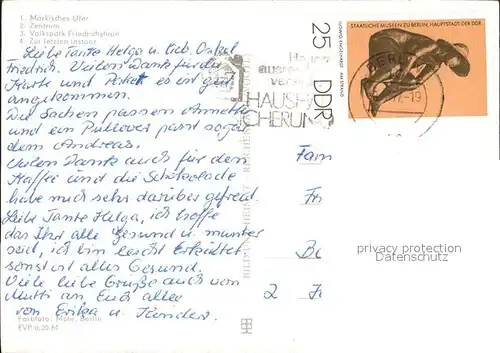 1. Märkisches Ufer
2. Zentrum
3. Volkspark Friedrichshain
4. Zur letzten Instanz
Liebe Tante Helga u. lieb. Onkel
Friedrich. Vielen Dank für die
Karte und Paket es ist gut
angekommen.
Die Sachen passen Annett
und ein Pullover passt sogar
dem Andreas.
Vielen Dank auch für den
Kaffee und die Schokolade
habe mich sehr darüber gefreut.
Liebe Tante Helga, ich hoffe
das Ihr alle Gesund u. munter
seid, ich bin leicht Erkältet
sonst ist alles Gesund.
Viele liebe Grüße auch von
Mutti an Euch alle
von Erika u. Kinder.
Farbfoto: Mote, Berlin
EVP 0,20 M
BILD UND HEIMAT REICHENBACH
HAUSHA
ICHERUN
25 DDR
LUDWIG ENGELHARDT AM STRAND
STAATLICHE MUSEEN ZU BERLIN, HAUPTSTADT DER DDR
BERLIN
-19
Fam
Fr
2
privacy protection
Datenschutz